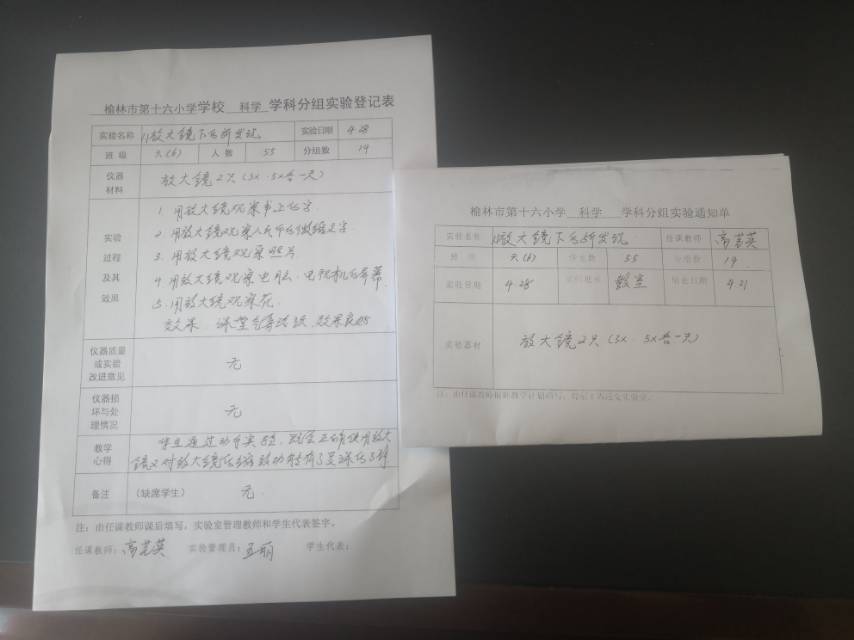 榆林市第十六小学学校 科学 学科分组实验登记表
实验名称 放大镜下的新发现 实验日期 4.28
班级 六(6) 人数 55 分组数 19
仪器材料 放大镜2只(3x.5x各一只)
实验过程及其效果
1. 用放大镜观察书上的字
2. 用放大镜观察人民币的微缩文字
3. 用放大镜观察照片
4. 用放大镜观察电脑、电视机的屏幕
5. 用放大镜观察花
效果 课堂气氛活跃 效果良好
仪器质量或实验改进意见 无
仪器损坏与处理情况 无
教学心得 学生通过动手实验,学会正确使用放大
镜 对放大镜的 功能有了更深的了解
备注 (缺席学生) 无
注:由任课教师课后填写,实验室管理教师和学生代表签字。
任课教师: 实验管理员: 学生代表:
榆林市第十六小学 科学 学科分组实验通知单
实验名称 放大镜下的新发现 任课教师
六(6) 学生数 55 分组数 19
实验日期 4.28 教室 4.21
实验器材 放大镜2只(3x.5x各一只)